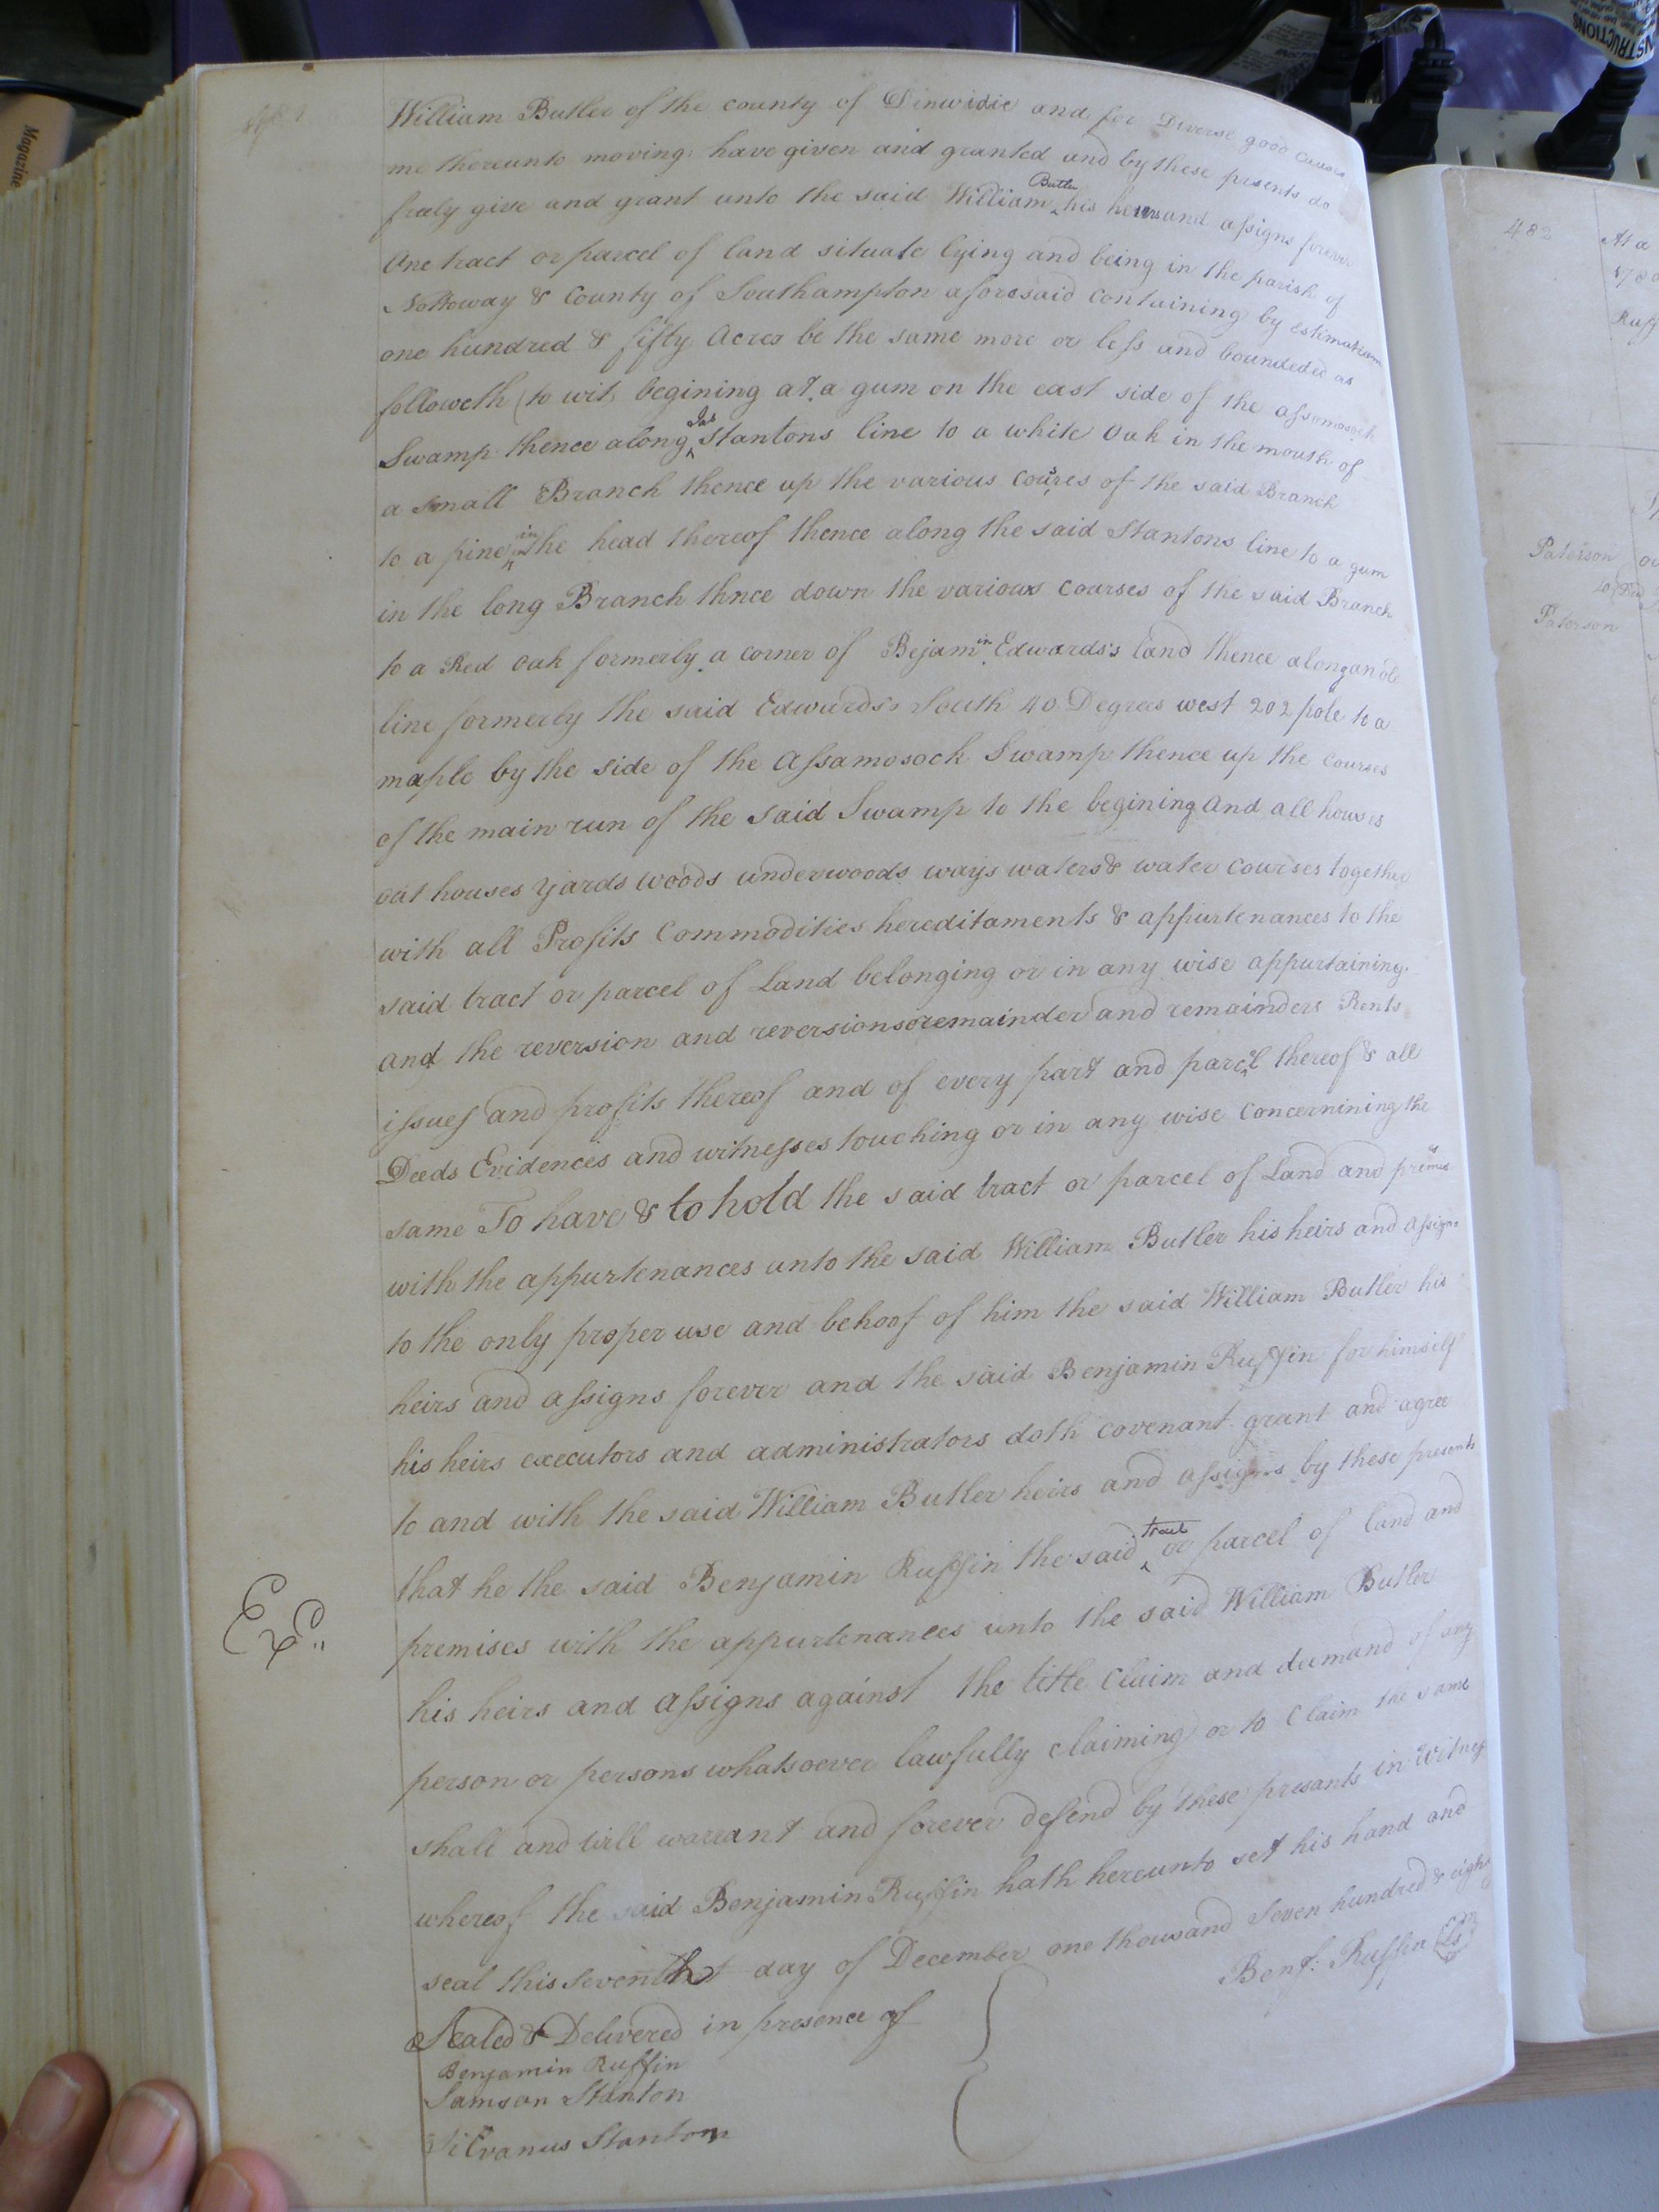 481
William Butler of the county of Dinwidie and for Diverse good Causes
me thereunto moving have given and granted and by these prsents do
freely give and grant unto the said William Butler his heirs and assigns forever
One tract or parcel of land situate lying and being in the parish of
Nottoway & County of Southampton aforesaid Containing by estimation
one hundred & fifty Acres be the same more or less and boundeded as
followeth (to wit) begining at a gum on the east side of the assamosock
Swamp thence along Jas Stantons line to a white Oak in the mouth of
a small Branch thence up the various courses of the said Branch
to a pine in the head thereof thence along the said Stantons line to a gum
in the long Branch thnce down the various courses of the said Branch
to a Red Oak formerly a corner of Bejamin Edwards's land thence along an old
line formerly the said Edwards's South 40 Degrees west 202 pole to a
maple by the side of the Assamosock Swamp thence up the Courses
of the main run of the said Swamp to the begining And all houses
out houses yards woods underwoods ways waters & water courses together
with all Profits Commodities hereditaments & appurtenances to the
said tract or parcel of Land belonging or in any wise appurtaining
and the reversion and reversions remainder and remainders Rents
issues and profits thereof and of every part and parcel thereof & all
Deeds Evidences and witnesses touching or in any wise Concernining the
same To have & to hold the said tract or parcel of Land and premis
with the appurtenances unto the said William Butler his heirs and assigns
to the only proper use and behoof of him the said William Butler his
heirs and assigns forever and the said Benjamin Ruffin for himself
his heirs executors and administrators doth covenant grant and agree
to and with the said William Butler heirs and assigns by these presents
that he the said Benjamin Ruffin the said tract or parcel of land and
premises with the appurtenances unto the said William Butler
his heirs and assigns against the title Claim and demand of any
person or persons whatsoever lawfully claiming or to Claim the same
shall and will warrant and forever defend by these presants in Witness
whereof the said Benjamin Ruffin hath hereunto set his hand and
seal this Seventh day of December one thousand Seven hundred & eighty
Benj: Ruffin (Ls)
Sealed & Delivered in presence of
Benjamin Ruffin
Samson Stanton
Silvanus Stanton
Exd
482
At a
Ruff
Paterson
to
Paterson
Magazine
INSTRUCTIONS